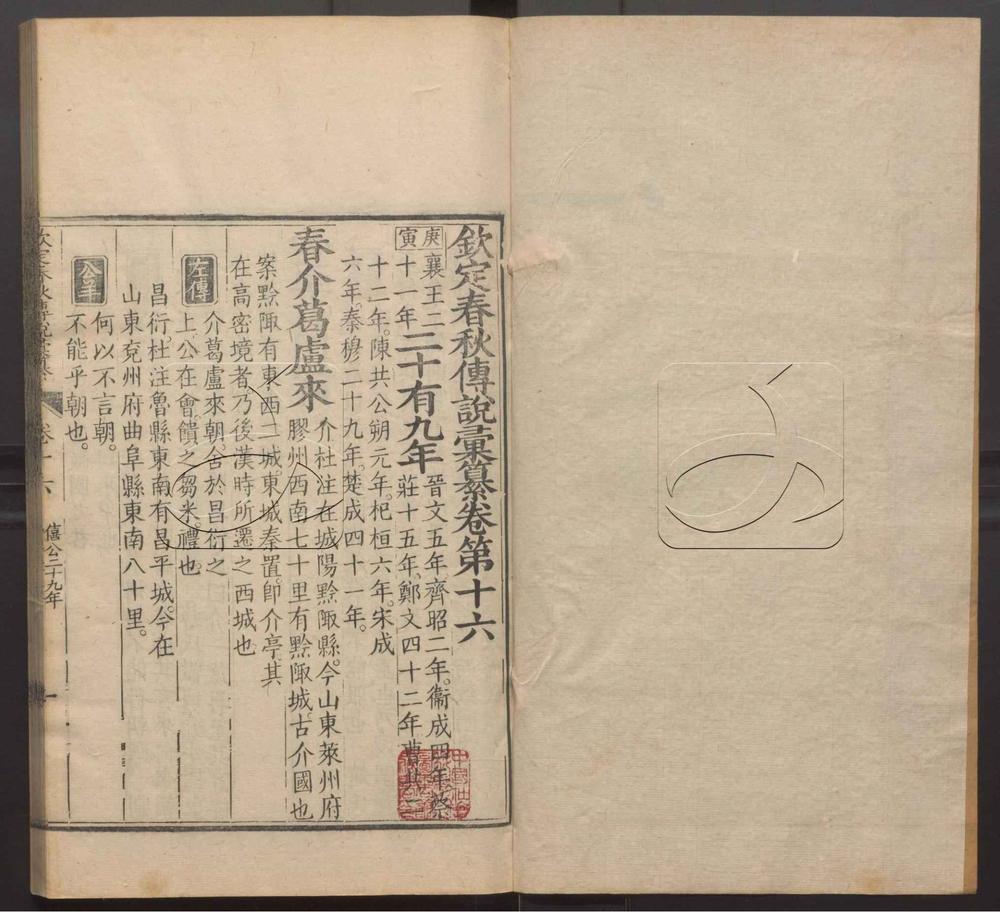 欽定春秋傳說彙纂卷第十六
庚寅
襄王二十一年
二十有九年
晉文五年齊昭二年衞成四年蔡
莊十五年鄭文四十二年曹共二
十二年陳共公朔元年杞桓六年宋成
六年秦穆二十九年楚成四十一年
春介葛盧來
介杜注在城陽黔陬縣今山東萊州府
膠州西南七十里有黔陬城古介國也
案黔陬有東西二城東城秦置卽介亭其
在高密境者乃後漢時所遷之西城也
左傳
介葛盧來朝舍於昌衍之
上公在會饋之芻米禮也
昌衍杜注魯縣東南有昌平城今在
山東兗州府曲阜縣東南八十里
公羊
何以不言朝
不能乎朝也
僖公二十九年